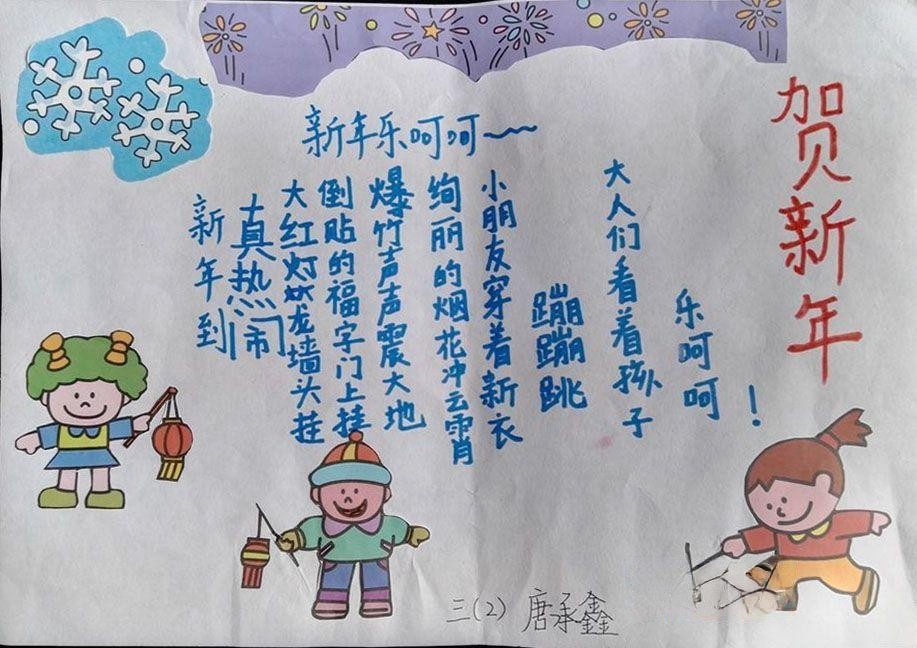 贺新年
新年乐呵呵~~
新年到
真热闹
大红灯笼墙头挂
倒贴的福字门上挂
爆竹声声震大地
绚丽的烟花冲云霄
小朋友穿着新衣
蹦蹦跳
大人们看着孩子
乐呵呵
!
三(2) 唐承鑫